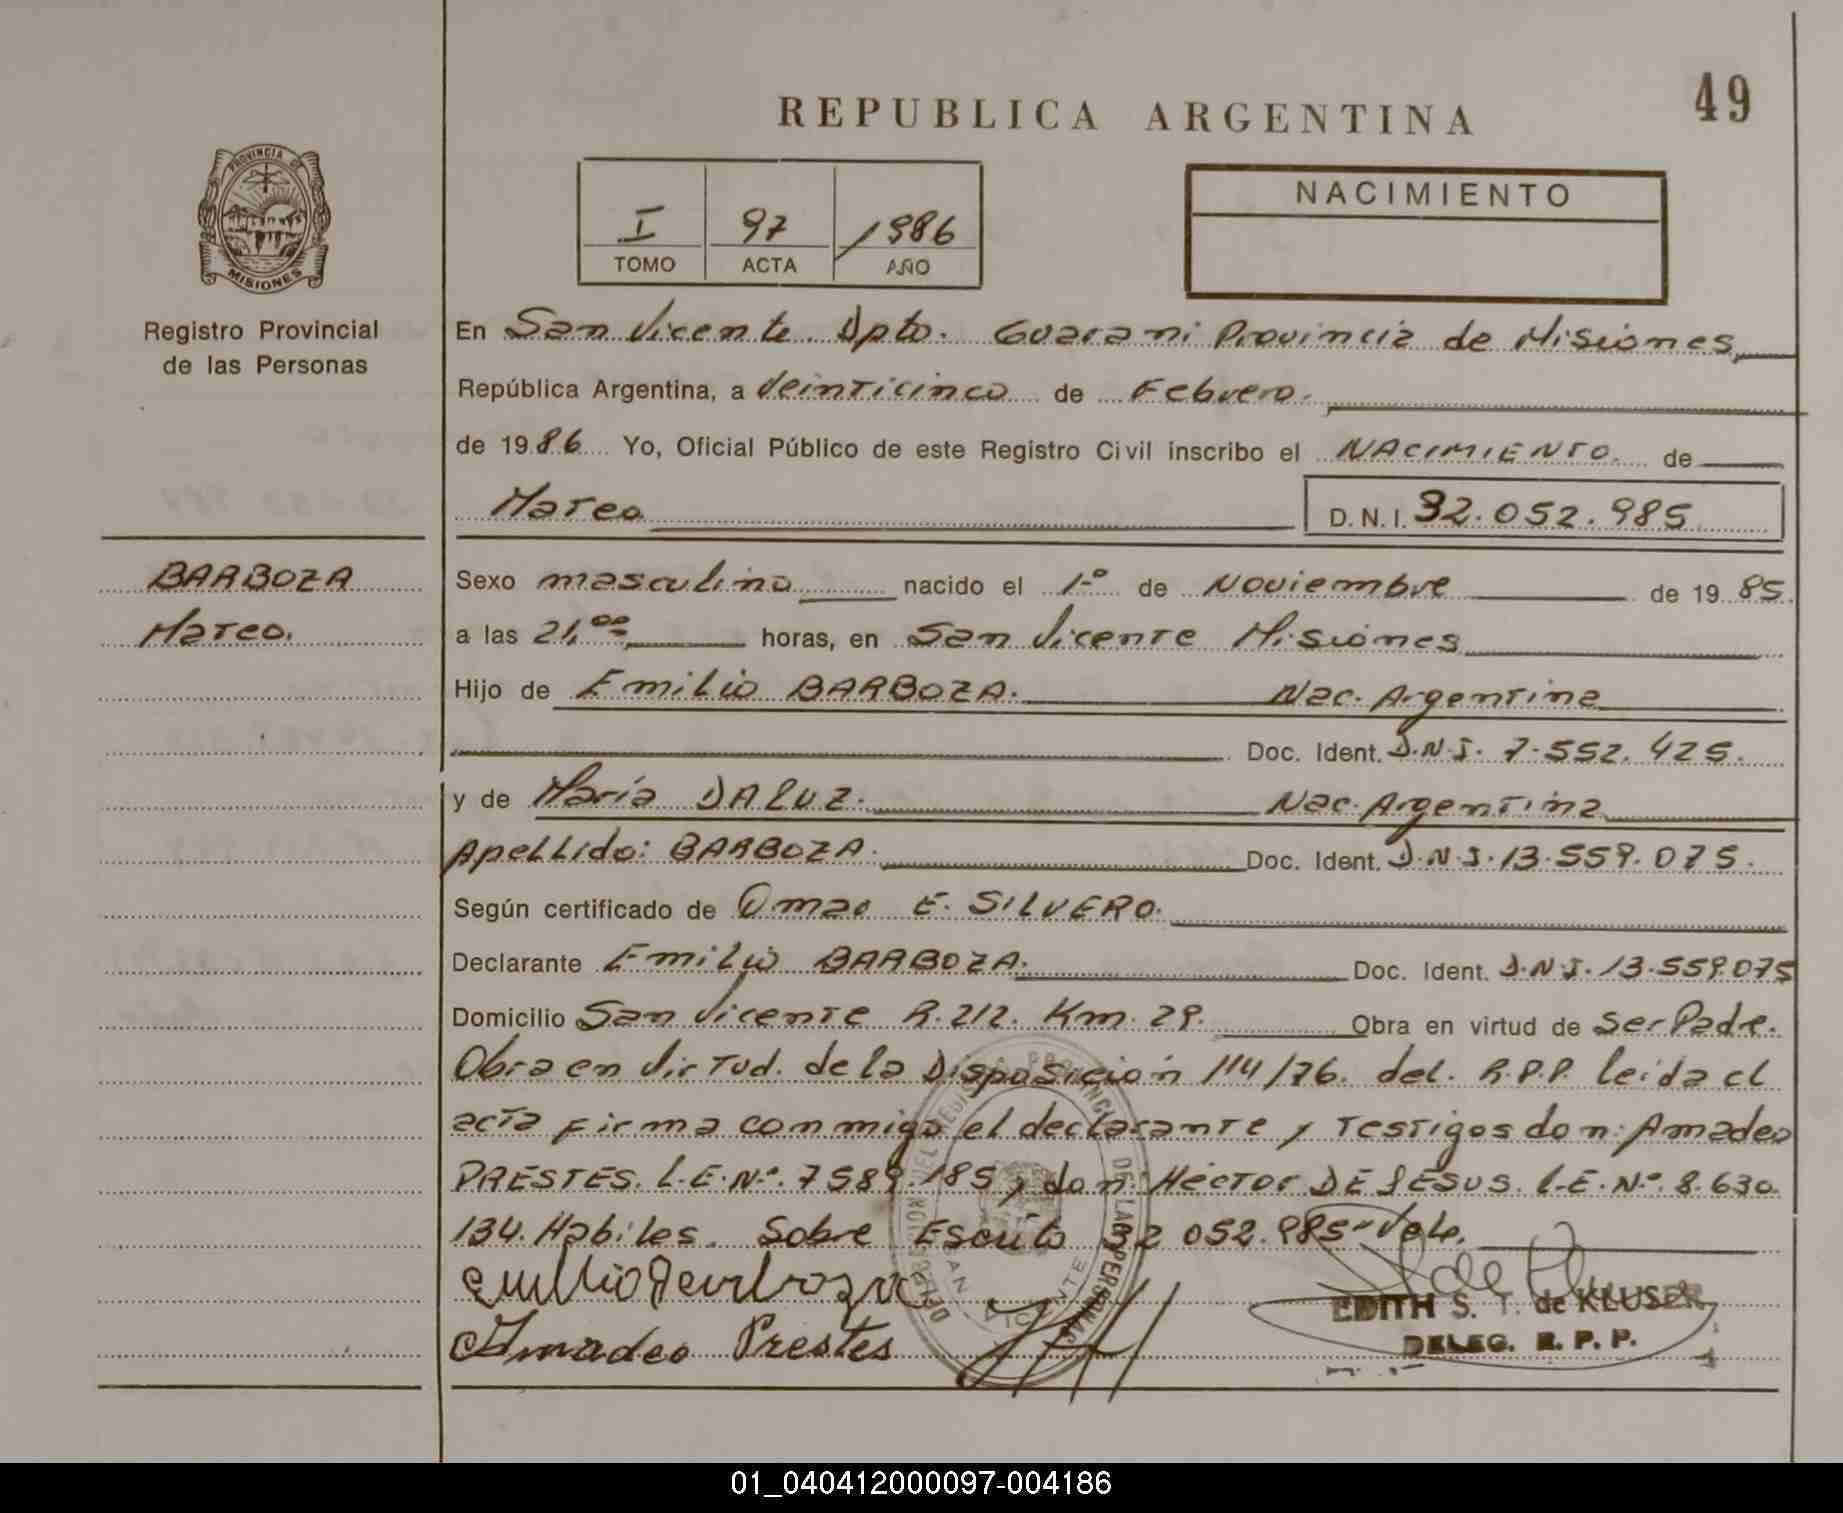 49
REPUBLICA ARGENTINA
PROVINCIA DE
MISIONES
Registro Provincial
de las Personas
I 97 1986
TOMO ACTA AÑO
NACIMIENTO
En San Vicente Dpto. Guarani Provincia de Misiones
República Argentina, a Veinticinco de Febrero.
de 1986 Yo, Oficial Público de este Registro Civil inscribo el NACIMIENTO. de
Mateo D.N.I. 32.052.985
BARBOZA
Mateo.
Sexo masculino nacido el 1º de Noviembre de 1985
a las 21,00 horas, en San Vicente Misiones
Hijo de Emilio BARBOZA. Nac. Argentina
Doc. Ident. D.N.I. 7.552.425.
y de María DALUZ. Nac. Argentina
Apellido: BARBOZA. Doc. Ident. D.N.I. 13.559.075.
Según certificado de Omar E. SILVERO.
Declarante Emilio BARBOZA. Doc. Ident. D.N.I. 13.559.075
Domicilio San Vicente R. 212. Km. 29. Obra en virtud de Ser Padre.
Obra en Virtud. de la Disposición 114/76. del. R.P.P. leída el
acta firma conmigo el declarante y testigos don: Amadeo
PRESTES. L.E.Nº. 7589.185, don: Héctor DE JESUS. L.E.Nº. 8.630.
134. Habiles. Sobre Escrito 32 052.985 Vale.
Emilio Barboza
Amadeo Prestes
EDITH S. T. de KLUSER
DELEG. R. P. P.
01_040412000097-004186